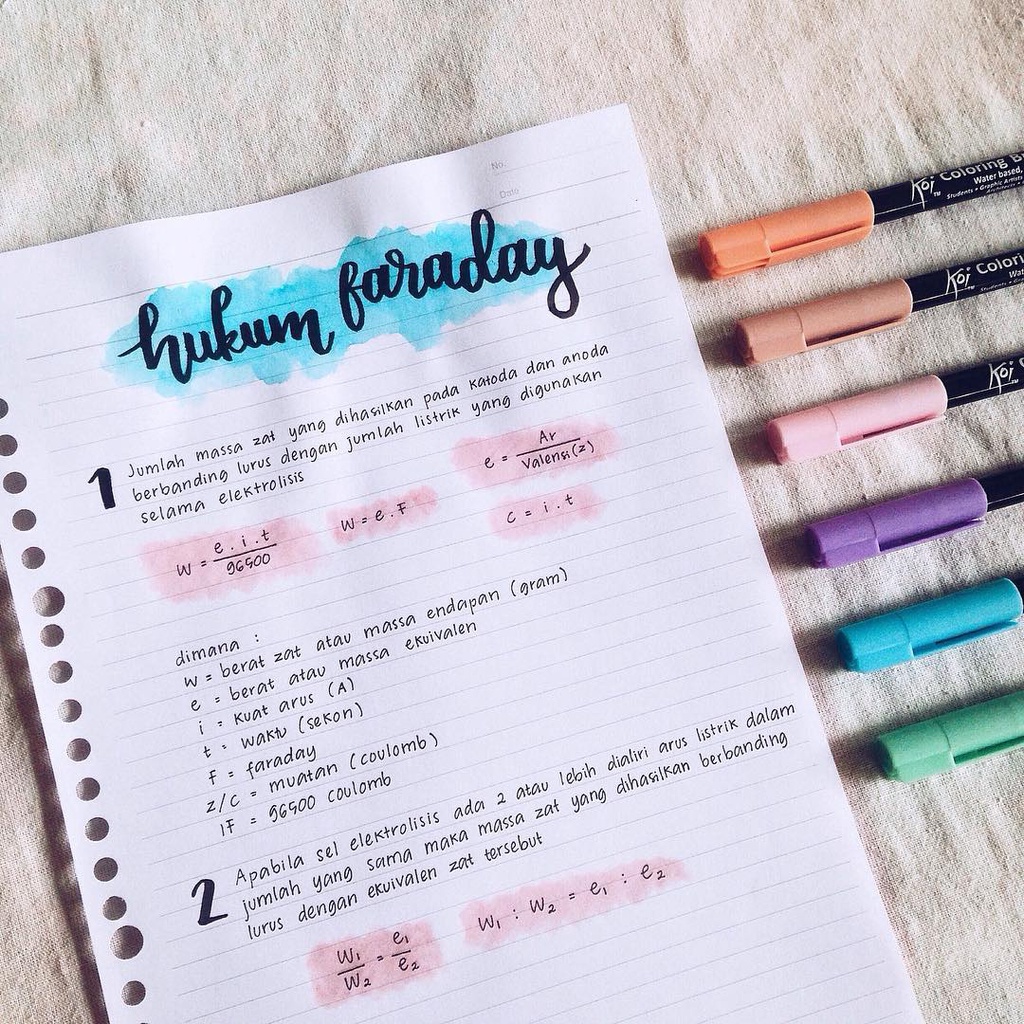 No.
Date
hukum faraday
1 Jumlah massa zat yang dihasilkan pada katoda dan anoda
berbanding lurus dengan jumlah listrik yang digunakan
selama elektrolisis
e = Ar / Valensi(z)
W = e . i . t / 96500
W = e . F
C = i . t
dimana :
w = berat zat atau massa endapan (gram)
e = berat atau massa ekuivalen
i = kuat arus (A)
t = waktu (sekon)
F = faraday
z/c = muatan (coulomb)
1F = 96500 coulomb
2 Apabila sel elektrolisis ada 2 atau lebih dialiri arus listrik dalam
jumlah yang sama maka massa zat yang dihasilkan berbanding
lurus dengan ekuivalen zat tersebut
W₁ / W₂ = e₁ / e₂
W₁ : W₂ = e₁ : e₂
Koi Coloring B
Water based,
Students • Graphic Artists
Koi Colori
Wat
Koi